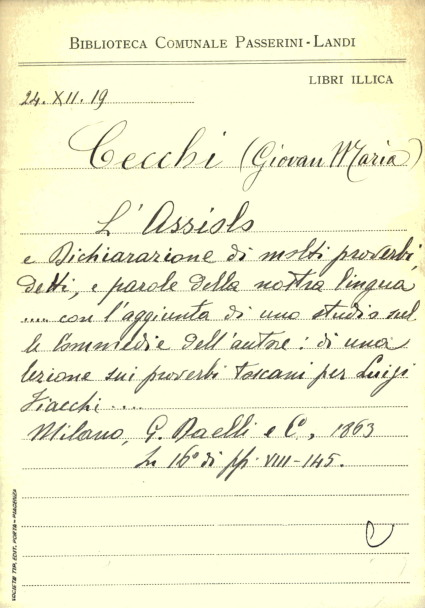 BIBLIOTECA COMUNALE PASSERINI-LANDI
LIBRI ILLICA
24. XII. 19
Cecchi (Giovan Maria)
L'Assiolo
e Dichiarazione di molti proverbi,
detti, e parole della nostra lingua
.... con l'aggiunta di uno studio sul
le Commedie dell'autore: di una
lezione sui proverbi toscani per Luigi
Fiacchi ....
Milano, G. Daelli e C°, 1863
In 16° di pp. VIII-145.
SOCIETÀ TIP. EDIT. PORTA - PIACENZA